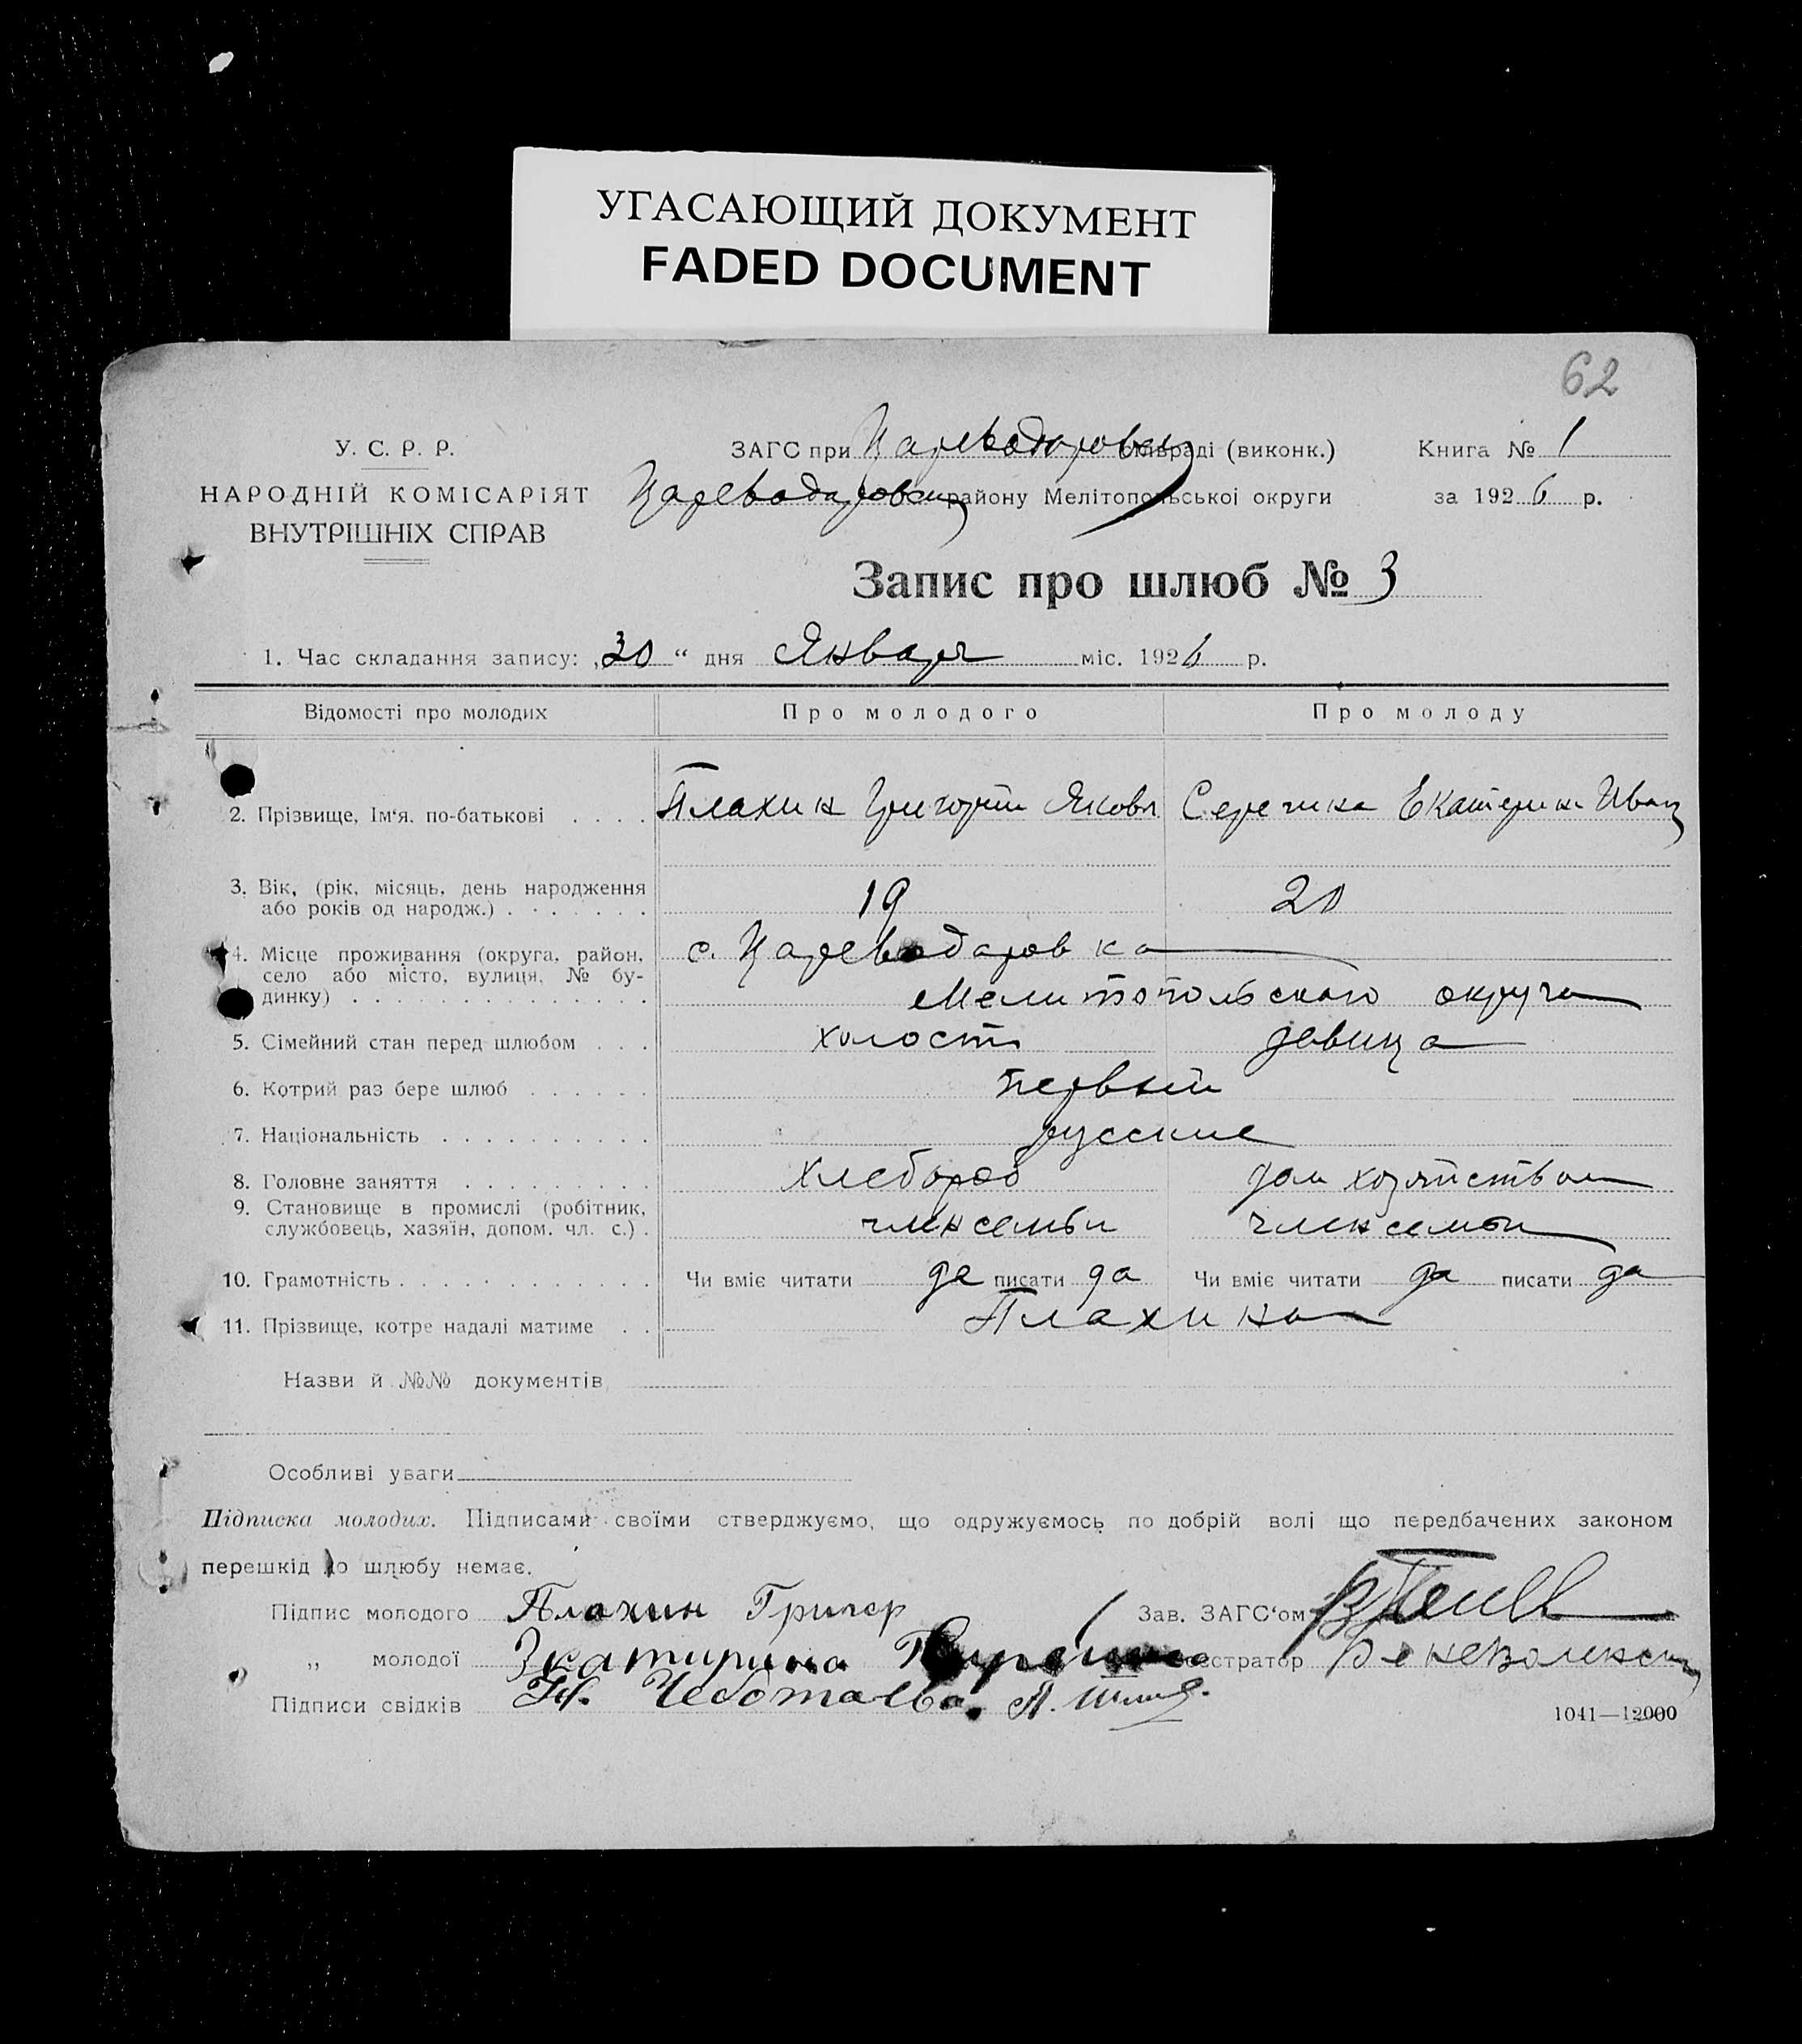 УГАСАЮЩИЙ ДОКУМЕНТ
FADED DOCUMENT
62
У. С. Р. Р.
НАРОДНІЙ КОМІСАРІЯТ
ВНУТРІШНІХ СПРАВ
ЗАГС при Цареводаровск сільраді (виконк.)
Цареводаровск району Мелітопольської округи
Книга № 1
за 1926 р.
Запис про шлюб № 3
1. Час складання запису: „30“ дня Января міс. 1926 р.
Відомості про молодих Про молодого Про молоду
2. Прізвище, Ім'я, по-батькові . . . . Плахин Григорий Яковл Екатерина Иван
3. Вік, (рік, місяць, день народження
або років од народж.) . . . . . . . 19 20
4. Місце проживання (округа, район, с. Цареводаровка
село або місто, вулиця, № бу-
динку) . . . . . . . . . . . . . . Мелитопольского округа
5. Сімейний стан перед шлюбом . . . холост девица
6. Котрий раз бере шлюб . . . . . . первый
7. Національність . . . . . . . . . . русские
8. Головне заняття . . . . . . . . . хлебороб дом хозяйством
9. Становище в промислі (робітник,
службовець, хазяїн, допом. чл. с.) . член семьи член семьи
10. Грамотність . . . . . . . . . . . . Чи вміє читати да писати да Чи вміє читати да писати да
11. Прізвище, котре надалі матиме . . Плахина
Назви й №№ документів
Особливі уваги
Підписка молодих. Підписами своїми стверджуємо, що одружуємось по добрій волі що передбачених законом
перешкід до шлюбу немає.
Підпис молодого Плахин Григор Зав. ЗАГС'ом
„ молодої Экатирина Реєстратор
Підписи свідків Чеботаева.
1041—12000